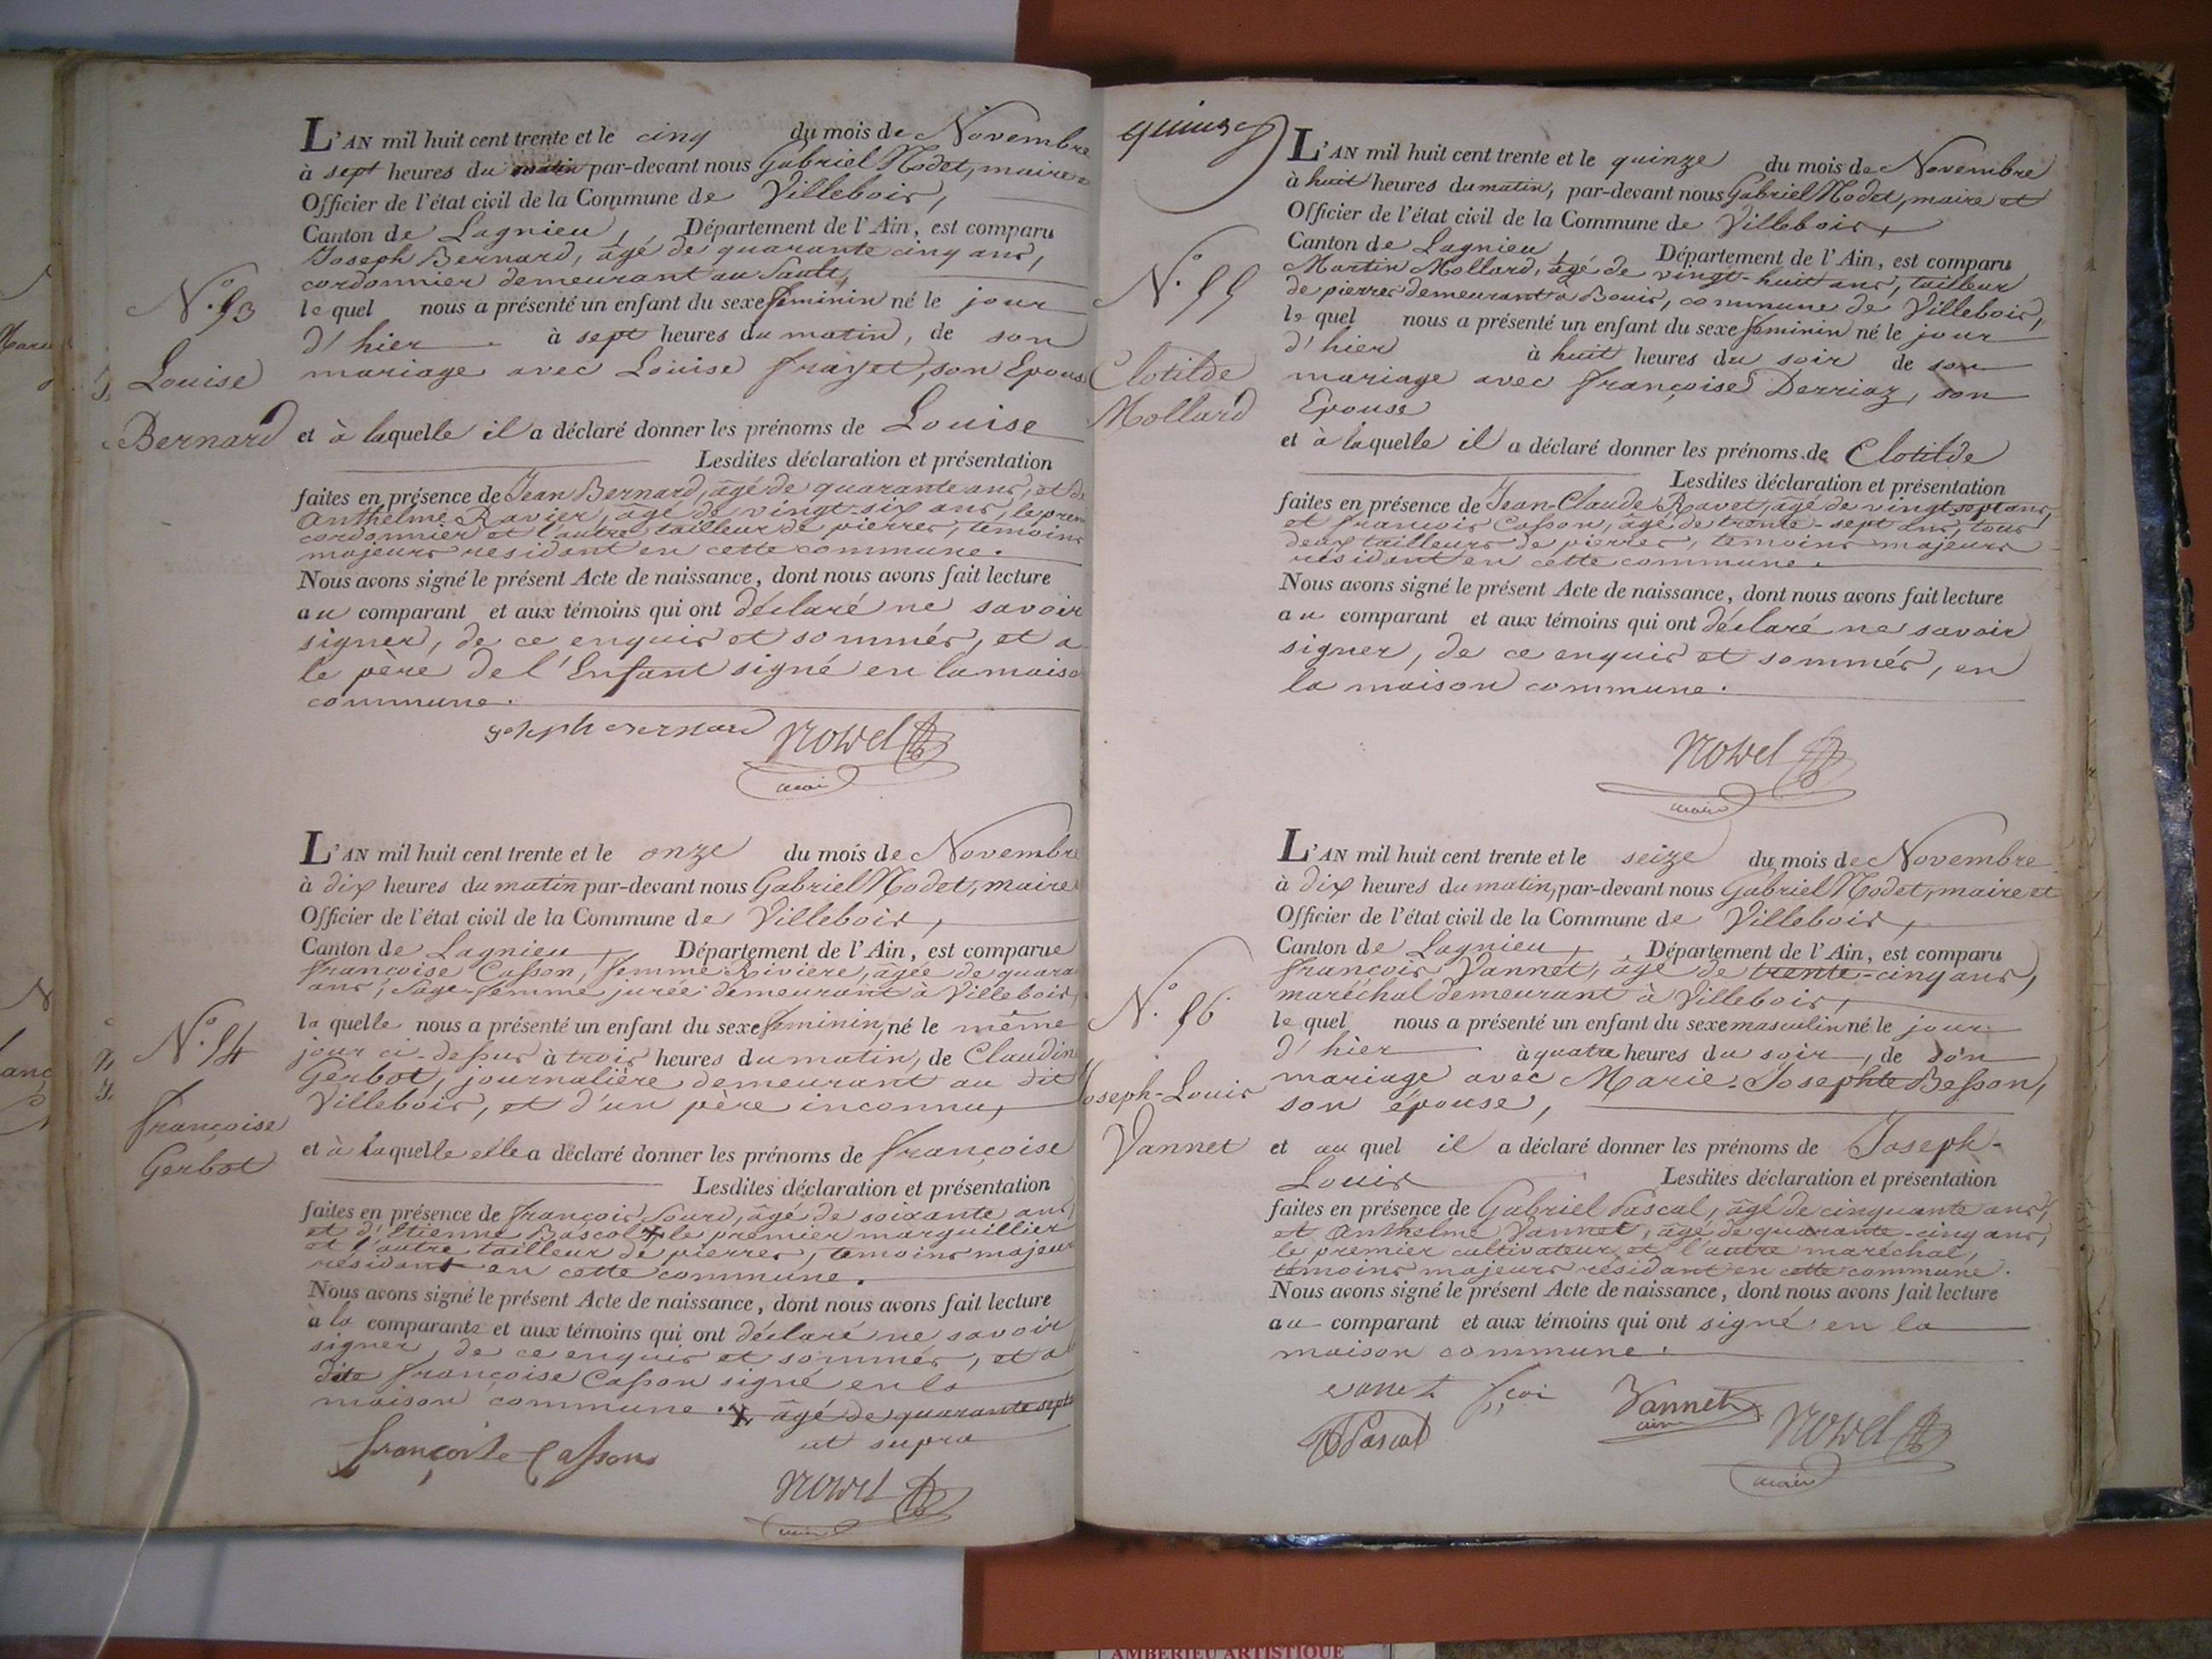 L'AN mil huit cent trente et le cinq du mois de Novembre
à sept heures du matin par-devant nous Gabriel Nodet, maire
Officier de l'état civil de la Commune de Villebois,
Canton de Lagnieu, Département de l'Ain, est comparu
Joseph Bernard, âgé de quarante cinq ans,
cordonnier demeurant au Sault,
le quel nous a présenté un enfant du sexe feminin né le jour
N.° 53
d'hier à sept heures du matin, de son
mariage avec Louise frayet, son Epouse
Louise
Bernard
et à laquelle il a déclaré donner les prénoms de Louise
Lesdites déclaration et présentation
faites en présence de Jean Bernard, âgé de quarante ans, et de
Anthelme Ravier, âgé de vingt-six ans, le prem
cordonnier et l'autre tailleur de pierres, temoins
majeurs residant en cette commune.
Nous avons signé le présent Acte de naissance, dont nous avons fait lecture
au comparant et aux témoins qui ont déclaré ne savoir
signer, de ce enquis et sommés, et a
le père de l'Enfant signé en la maiso
commune.
joseph bernard Nodet
maire
L'AN mil huit cent trente et le onze du mois de Novembre
à dix heures du matin par-devant nous Gabriel Nodet, maire
Officier de l'état civil de la Commune de Villebois,
Canton de Lagnieu, Département de l'Ain, est comparue
françoise Casson, femme Riviere, âgée de quara
ans, sage-femme jurée demeurant à Villebois,
la quelle nous a présenté un enfant du sexe feminin, né le même
N.° 54
jour ci-dessus à trois heures du matin, de Claudin
Gerbot, journalière demeurant au dit
Villebois, et d'un père inconnu,
françoise
Gerbot
et à laquelle elle a déclaré donner les prénoms de françoise
Lesdites déclaration et présentation
faites en présence de françois Sourd, âgé de soixante ans,
et d'Etienne Bascol + le premier marguillier
et l'autre tailleur de pierres, temoins majeur
résidant en cette commune.
Nous avons signé le présent Acte de naissance, dont nous avons fait lecture
à la comparante et aux témoins qui ont déclaré ne savoir
signer, de ce enquis et sommés, et a
dite françoise Casson signé en la
maison commune. + âgé de quarante sept
ut supra
françoise Casson
Nodet
maire
quinze
L'AN mil huit cent trente et le quinze du mois de Novembre
à huit heures du matin, par-devant nous Gabriel Nodet, maire et
Officier de l'état civil de la Commune de Villebois,
Canton de Lagnieu, Département de l'Ain, est comparu
Martin Mollard, âgé de vingt-huit ans, tailleur
de pierres demeurant à Bouis, commune de Villebois,
N.° 55
le quel nous a présenté un enfant du sexe feminin né le jour
d'hier à huit heures du soir de son
mariage avec françoise Derriaz, son
Epouse
Clotilde
Mollard
et à laquelle il a déclaré donner les prénoms de Clotilde
Lesdites déclaration et présentation
faites en présence de Jean-Claude Ravet, âgé de vingt-sept ans,
et françois Casson, âgé de trente-sept ans, tous
deux tailleurs de pierres, temoins majeurs
résidant en cette commune.
Nous avons signé le présent Acte de naissance, dont nous avons fait lecture
au comparant et aux témoins qui ont déclaré ne savoir
signer, de ce enquis et sommés, en
la maison commune.
Nodet
maire
L'AN mil huit cent trente et le seize du mois de Novembre
à dix heures du matin, par-devant nous Gabriel Nodet, maire et
Officier de l'état civil de la Commune de Villebois,
Canton de Lagnieu, Département de l'Ain, est comparu
françois Vannet, âgé de trente-cinq ans,
maréchal demeurant à Villebois,
N.° 56
le quel nous a présenté un enfant du sexe masculin né le jour
d'hier à quatre heures du soir, de son
mariage avec Marie-Josephte Besson,
son épouse,
Joseph-Louis
Vannet
et au quel il a déclaré donner les prénoms de Joseph-
Louis Lesdites déclaration et présentation
faites en présence de Gabriel Pascal, âgé de cinquante ans,
et Anthelme Vannet, âgé de quarante-cinq ans,
le premier cultivateur et l'autre maréchal,
témoins majeurs résidant en cette commune.
Nous avons signé le présent Acte de naissance, dont nous avons fait lecture
au comparant et aux témoins qui ont signé en la
maison commune.
vanet fçoi Vannet
Pascal Nodet
maire
AMBERIEU ARTISTIQUE